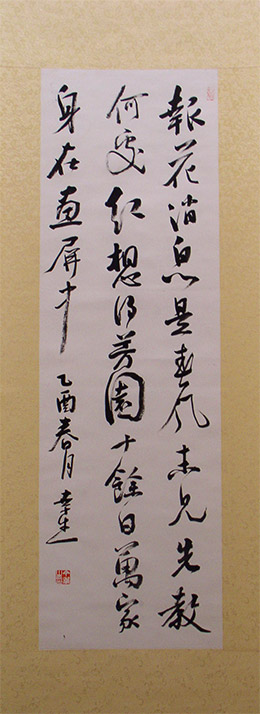 報花消息是春風未見先教
何処紅想得芳園十餘日萬家
身在画屏中
乙酉春月